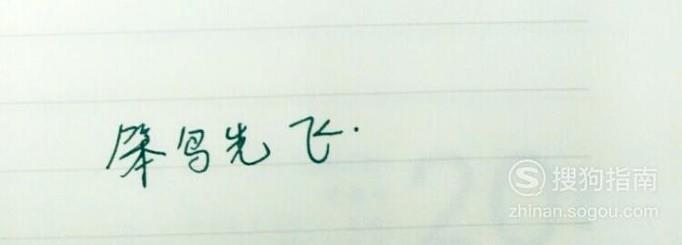 笨鸟先飞.
搜狗指南
zhinan.sogou.com